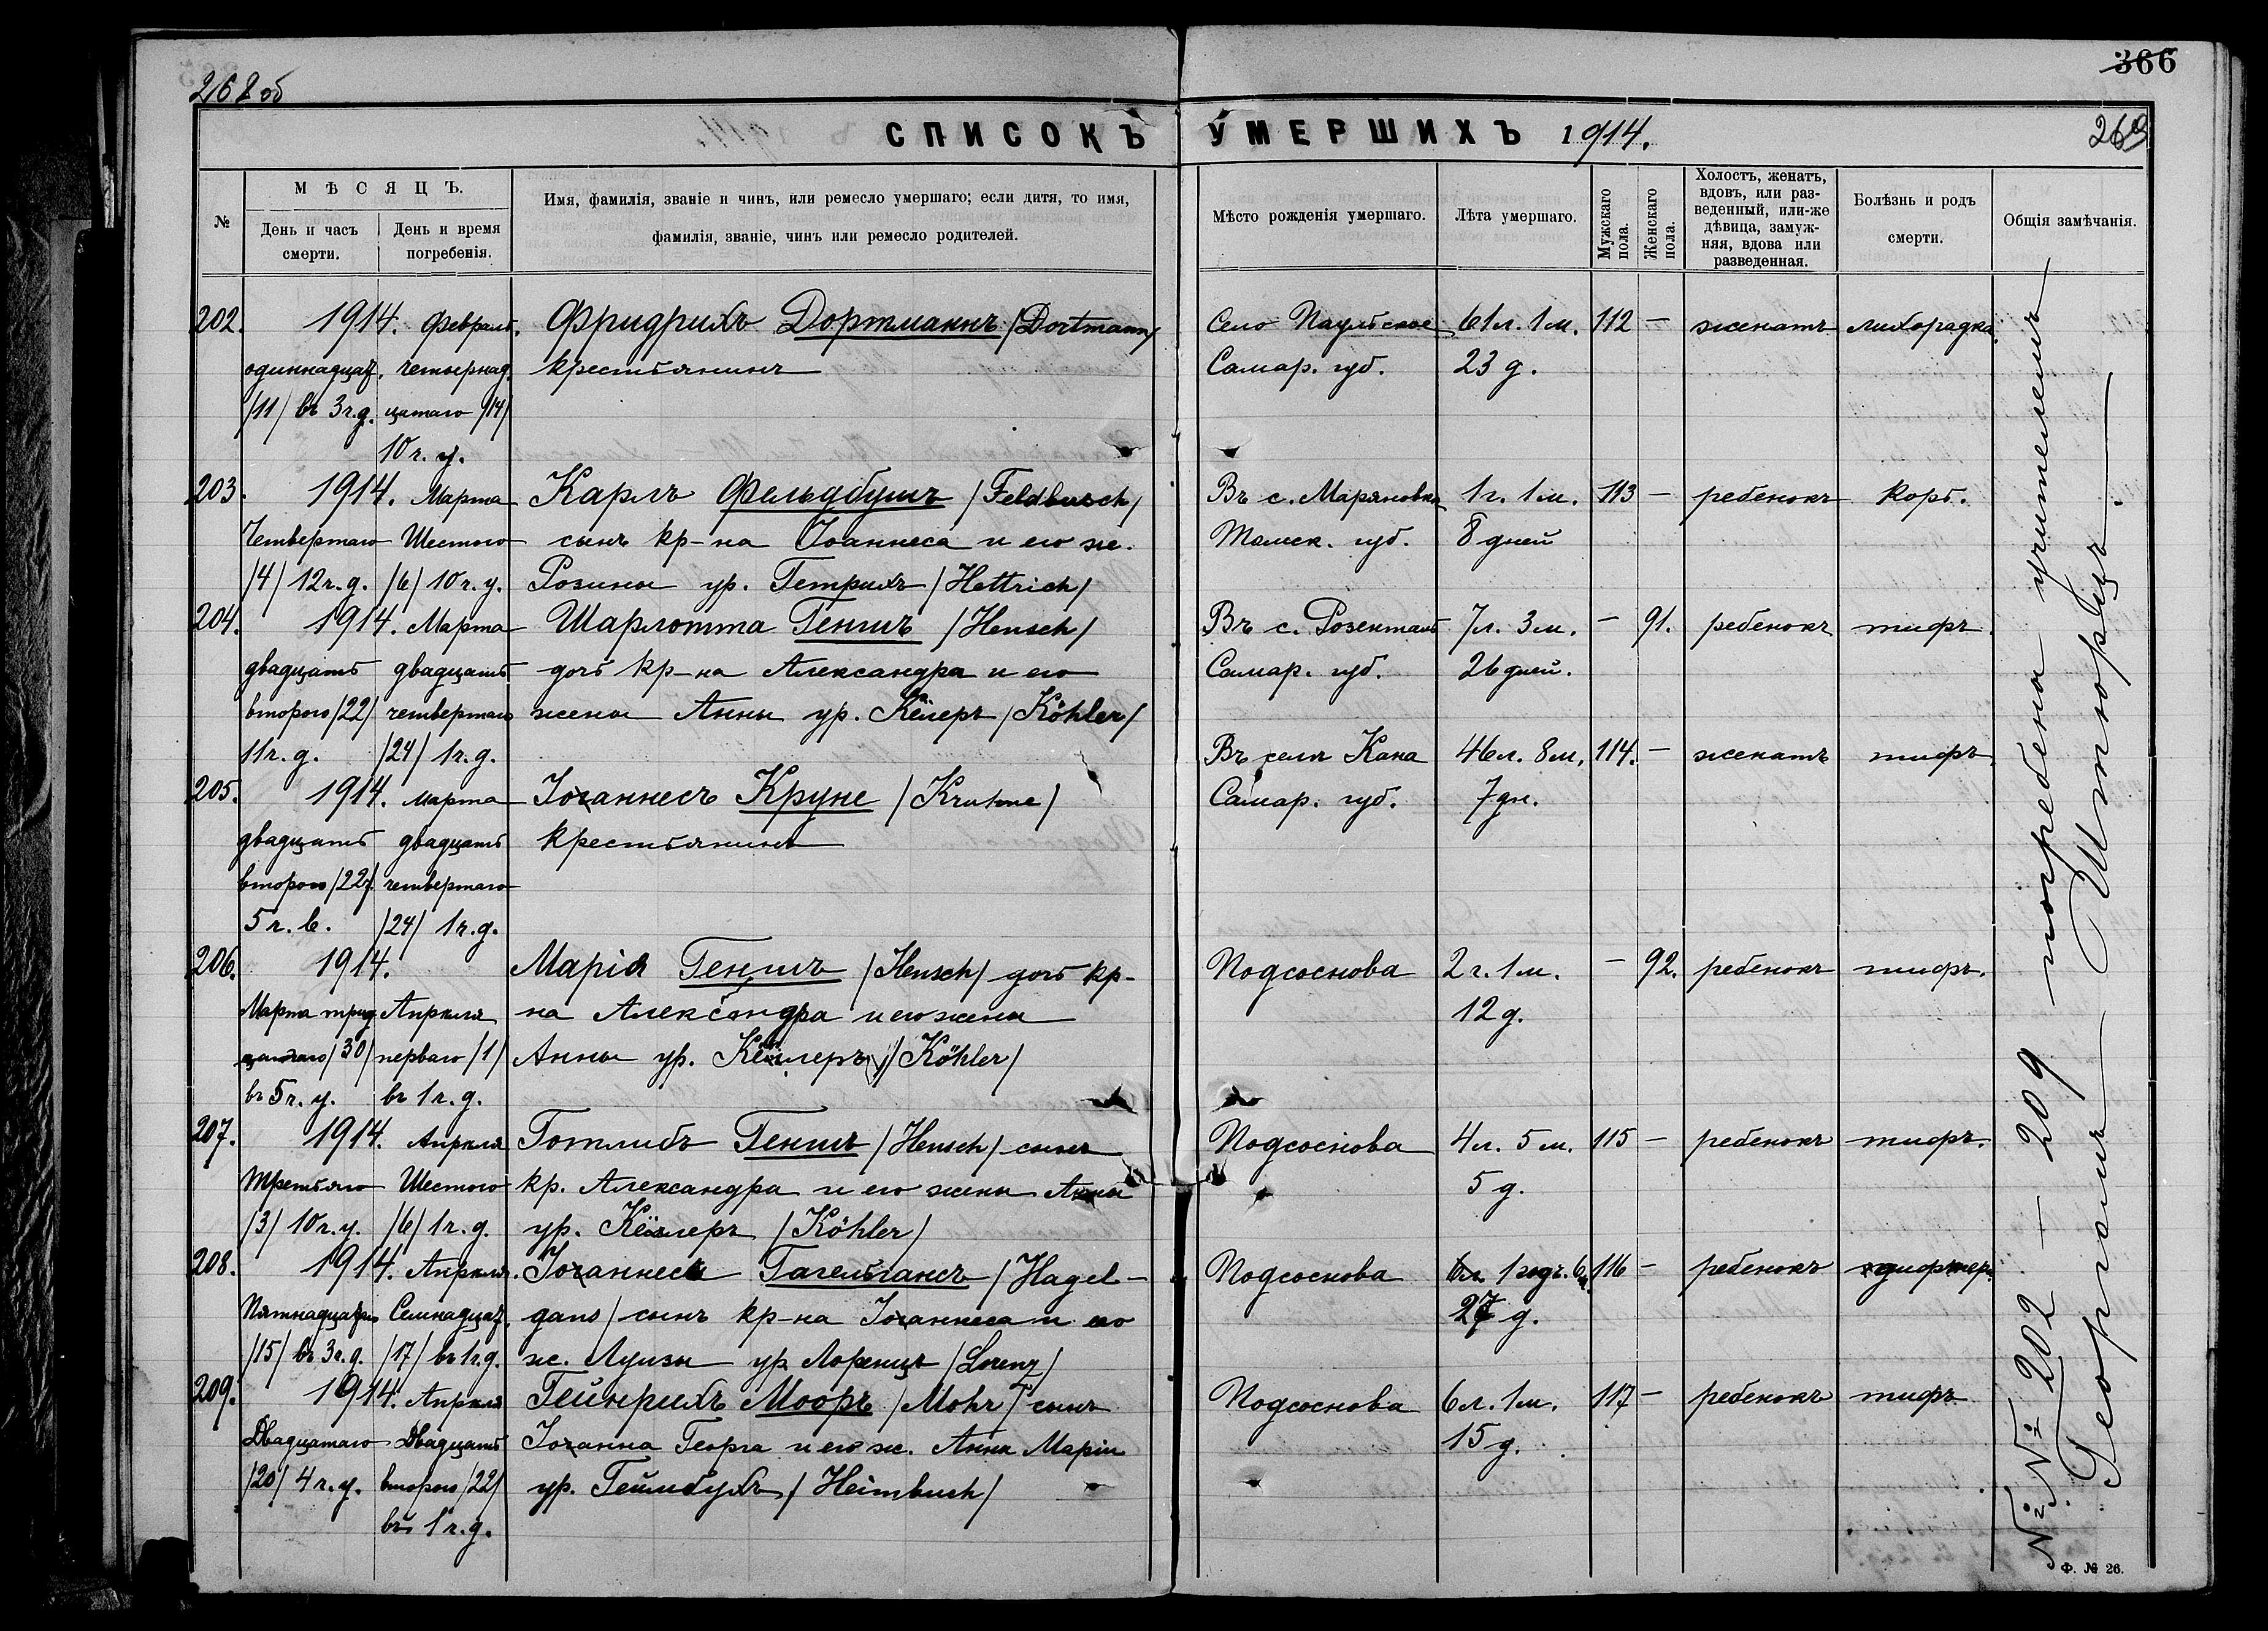 268 об
366
СПИСОКЪ УМЕРШИХЪ 1914.
269
№
МѢСЯЦЪ.
День и часъ смерти.
День и время погребенія.
Имя, фамилія, званіе и чинъ, или ремесло умершаго; если дитя, то имя,
фамилія, званіе, чинъ или ремесло родителей.
Мѣсто рожденія умершаго.
Лѣта умершаго.
Мужскаго пола.
Женскаго пола.
Холостъ, женатъ,
вдовъ, или раз-
веденный, или-же
дѣвица, замуж-
няя, вдова или
разведенная.
Болѣзнь и родъ
смерти.
Общія замѣчанія.
202. 1914. Февраль. Фридрихъ Дортманнъ /Dortmann/ Село Паульское 61 л. 1 м. 112 — женатъ лихорадка.
одиннадцат. четырнад. крестьянинъ Самар. губ. 23 д.
/11/ въ 3 ч. д. цатаго /14/
10 ч. у.
203. 1914. Марта Карлъ Фельдбушъ /Feldbusch/ Въ с. Маряновка 1 г. 1 м. 113 — ребенокъ корь.
Четвертаго Шестого сынъ кр-на Іоаннеса и его ж. Томск. губ. 8 дней
/4/ 12 ч. д. /6/ 10 ч. у. Розины ур. Гетрихъ /Hettrich/
204. 1914. Марта Шарлотта Геншъ /Hensch/ Въ с. Розенталь 7 л. 3 м. — 91. ребенокъ тифъ.
двадцать двадцать дочь кр-на Александра и его Самар. губ. 26 дней.
второго /22/ четвертаго жены Анны ур. Кёлеръ /Köhler/
11 ч. д. /24/ 1 ч. д. Въ селѣ Кана 46 л. 8 м. 114. — женатъ тифъ
205. 1914. Марта Іоганнесъ Круне /Kruhne/ Самар. губ. 7 дн.
двадцать двадцать крестьянинъ
второго /22/ четвертаго
5 ч. в. /24/ 1 ч. д.
206. 1914. Марія Геншъ /Hensch/ дочь кр- Подсоснова 2 г. 1 м. — 92. ребенокъ тифъ.
Марта трид Апрѣля на Александра и его жены 12 д.
цатаго /30/ перваго /1/ Анны ур. Кёлеръ /Köhler/
въ 5 ч. у. въ 1 ч. д.
207. 1914. Апрѣля Готлибъ Геншъ /Hensch/ сынъ Подсоснова 4 л. 5 м. 115 — ребенокъ тифъ.
Третьяго Шестого кр. Александра и его жены Анны 5 д.
/3/ 10 ч. у. /6/ 1 ч. д. ур. Кёлеръ /Köhler/
208. 1914. Апрѣля. Іоганнесъ Гагельгансъ /Hagel- Подсоснова 1 годъ. 6 м. 116 — ребенокъ
Пятнадцатаго Семнадцат. gans/ сынъ кр-на Іоганнеса и его 27 д.
/15/ въ 3 ч. д. /17/ въ 1 ч. д. ж. Луизы ур Лоренцъ /Lorenz/
209. 1914. Апрѣля Гейнрихъ Мооръ /Mohr/ сынъ Подсоснова 6 л. 1 м. 117 — ребенокъ тифъ
Двадцатаго Двадцать Іоганна Георга и его ж. Анна Маріи 15 д.
/20/ 4 ч. у. второго /22/ ур. Геймбухъ /Heimbuch/
въ 1 ч. д.
№№ 202 — 209 погребены учителемъ
Георгомъ Штторцъ.
Ф. № 26.